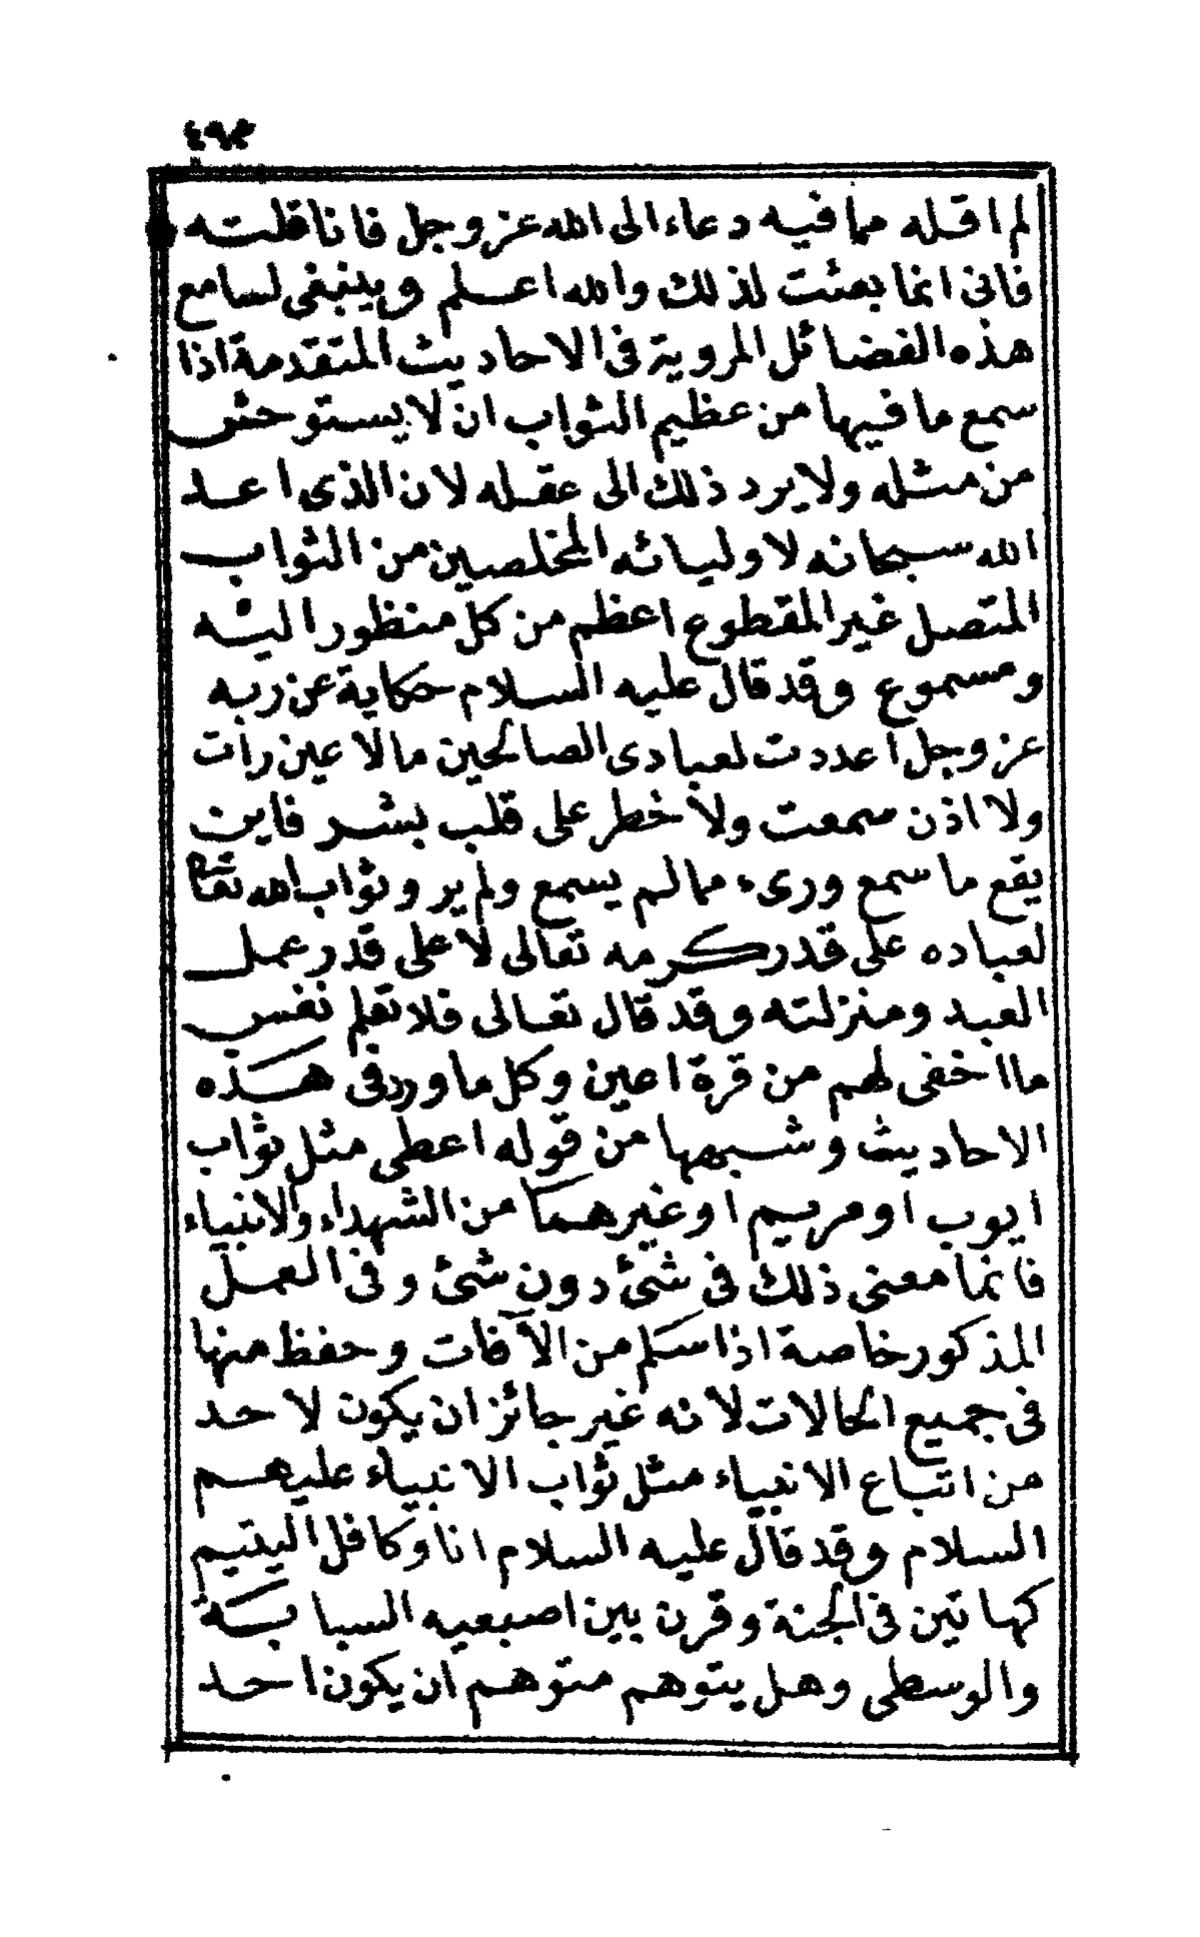 ٤٩٣
لم اقله مما فيه دعاء الى الله عز وجل فانا قلته
فانى انما بعثت لذلك والله اعلم وينبغى لسامع
هذه الفضائل المروية فى الاحاديث المتقدمة اذا
سمع ما فيها من عظيم الثواب ان لا يستوحش
من مثله ولا يرد ذلك الى عقله لان الذى اعد
الله سبحانه لاوليائه المخلصين من الثواب
المتصل غير المقطوع اعظم من كل منظور اليه
ومسموع وقد قال عليه السلام حكاية عن ربه
عز وجل اعددت لعبادى الصالحين ما لا عين رأت
ولا اذن سمعت ولا خطر على قلب بشر فاين
يقع ما سمع ورىء مما لم يسمع ولم ير وثواب الله تعالى
لعباده على قدر كرمه تعالى لا على قدر عمل
العبد ومنزلته وقد قال تعالى فلا تعلم نفس
ما اخفى لهم من قرة اعين وكل ما ورد فى هذه
الاحاديث وشبهها من قوله اعطى مثل ثواب
ايوب او مريم او غيرهما من الشهداء والانبياء
فانما معنى ذلك فى شئ دون شئ وفى العمل
المذكور خاصة اذا سلم من الآفات وحفظ منها
فى جميع الحالات لانه غير جائز ان يكون لاحد
من اتباع الانبياء مثل ثواب الانبياء عليهم
السلام وقد قال عليه السلام انا وكافل اليتيم
كهاتين فى الجنة وقرن بين اصبعيه السبابة
والوسطى وهل يتوهم متوهم ان يكون احد